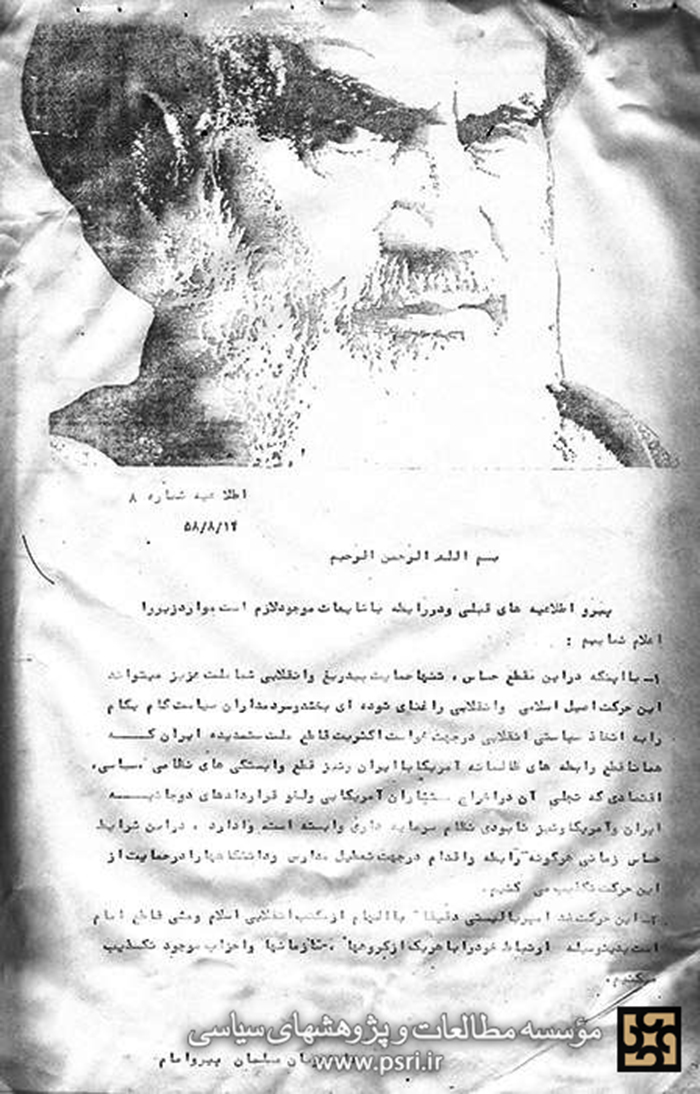 اطلاعیه شماره ۸
۵۸/۸/۱۴
بسم الله الرحمن الرحیم
پیرو اطلاعیه های قبلی ودررابطه باشایعات موجودلازم است مواردزیررا
اعلام نمائیم :
۱ـ بااینکه دراین مقطع حساس، تنهاحمایت بیدریغ وانقلابی شماملت عزیز میتواند
این حرکت اصیل اسلامی وانقلابی راغنای توده ای بخشدوسردمداران سیاست گام بگام
رابه اتخاذ سیاستی انقلابی درجهت خواست اکثریت قاطع ملت ستمدیده ایران کـــه
همانا قطع رابطه های ظالمانه آمریکا باایران ونیز قطع وابستگی های نظامی ،سیاسی،
اقتصادی که تجلی آن دراخراج مستشاران آمریکایی ولغو قراردادهای دوجانبـــه
ایران وآمریکاونیز نابودی نظام سرمایه داری وابسته است وادارد ، دراین شرایط
حساس زمانی هرگونه رابطه واقدام درجهت تعطیل مدارس ودانشگاهها رادرحمایت از
این حرکت تکذیب می کنیم.
۲ـ این حرکت ضد امپریالیستی دقیقا" باالهام ازمکتب انقلابی اسلام ومشی قاطع امام
است بدینوسیله ارتباط خودرا باهریک ازگروهها ،سازمانها واحزاب موجود تکذیب
میکنیم.
مسلمان پیروامام
مؤسسه مطالعات و پژوهشهای سیاسی
www.psri.ir